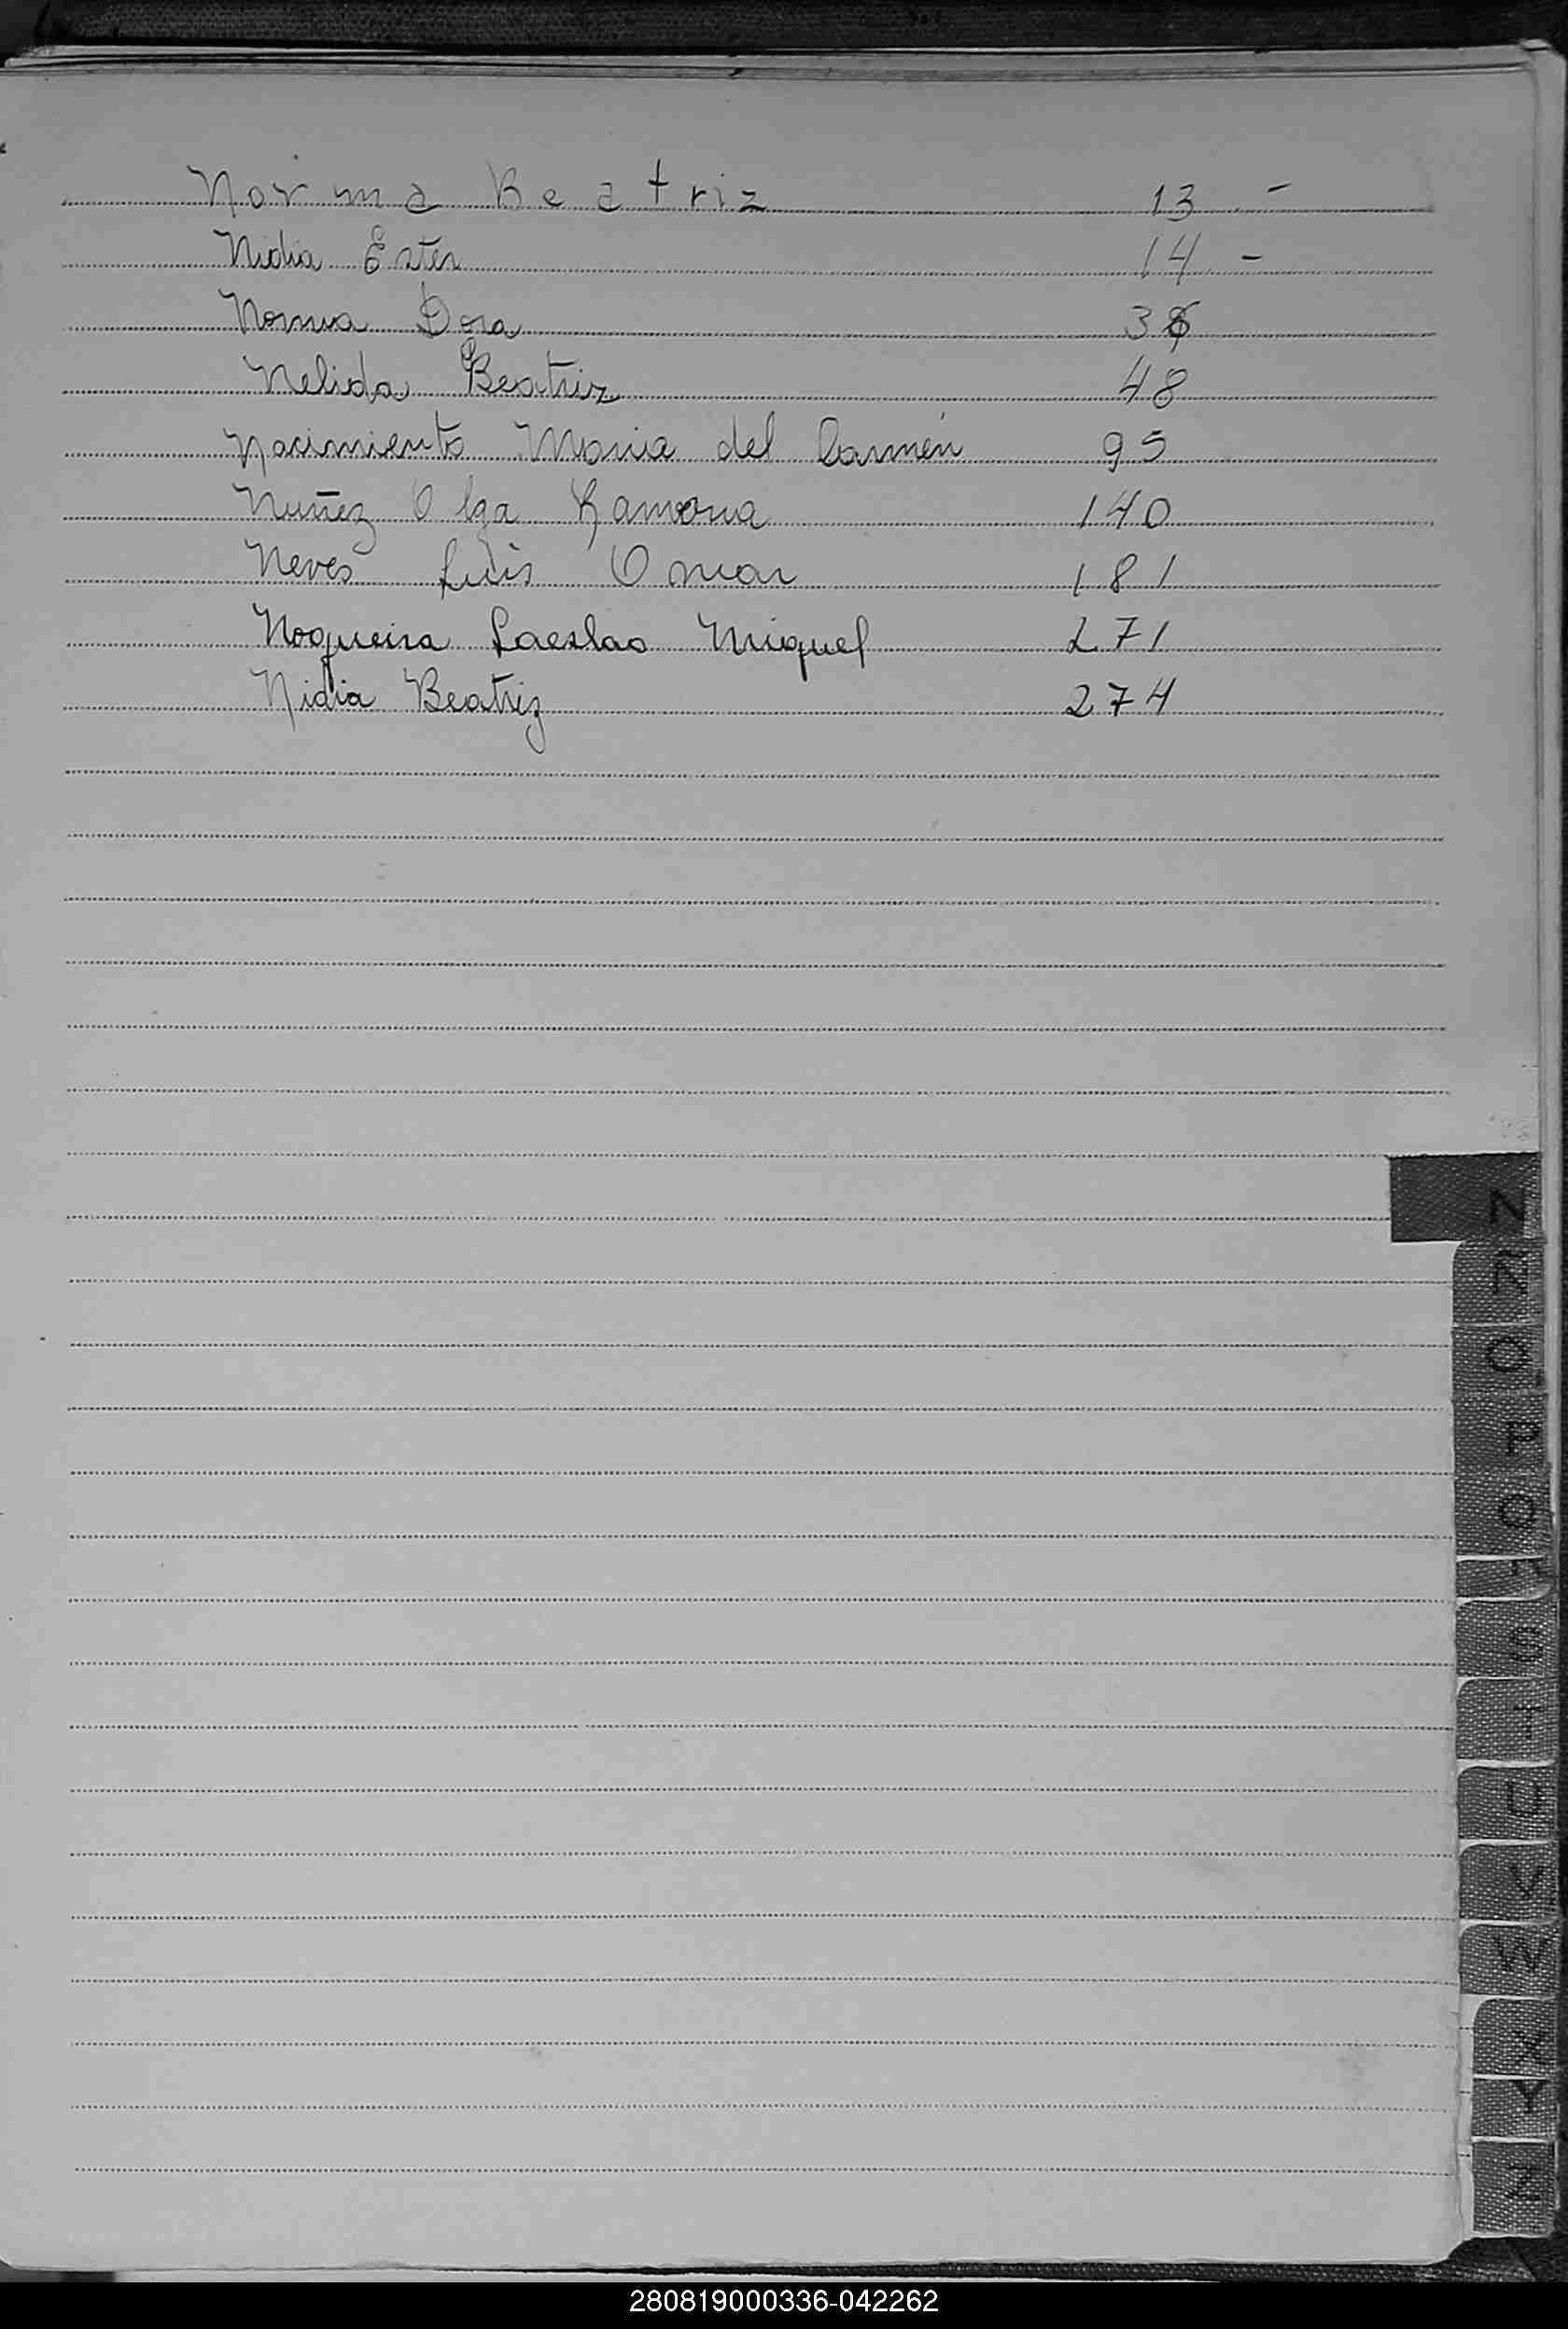 Norma Beatriz 13 -
Nidia Ester 14 -
Norma Dora 38
Nelida Beatriz 48
Nacimiento Maria del Carmén 95
Nuñez Olga Ramona 140
Neves Luis Omar 181
Nogueira Laeslao Miguel 271
Nidia Beatriz 274
N
Ñ
O
P
Q
S
T
U
V
W
X
Y
Z
280819000336-042262